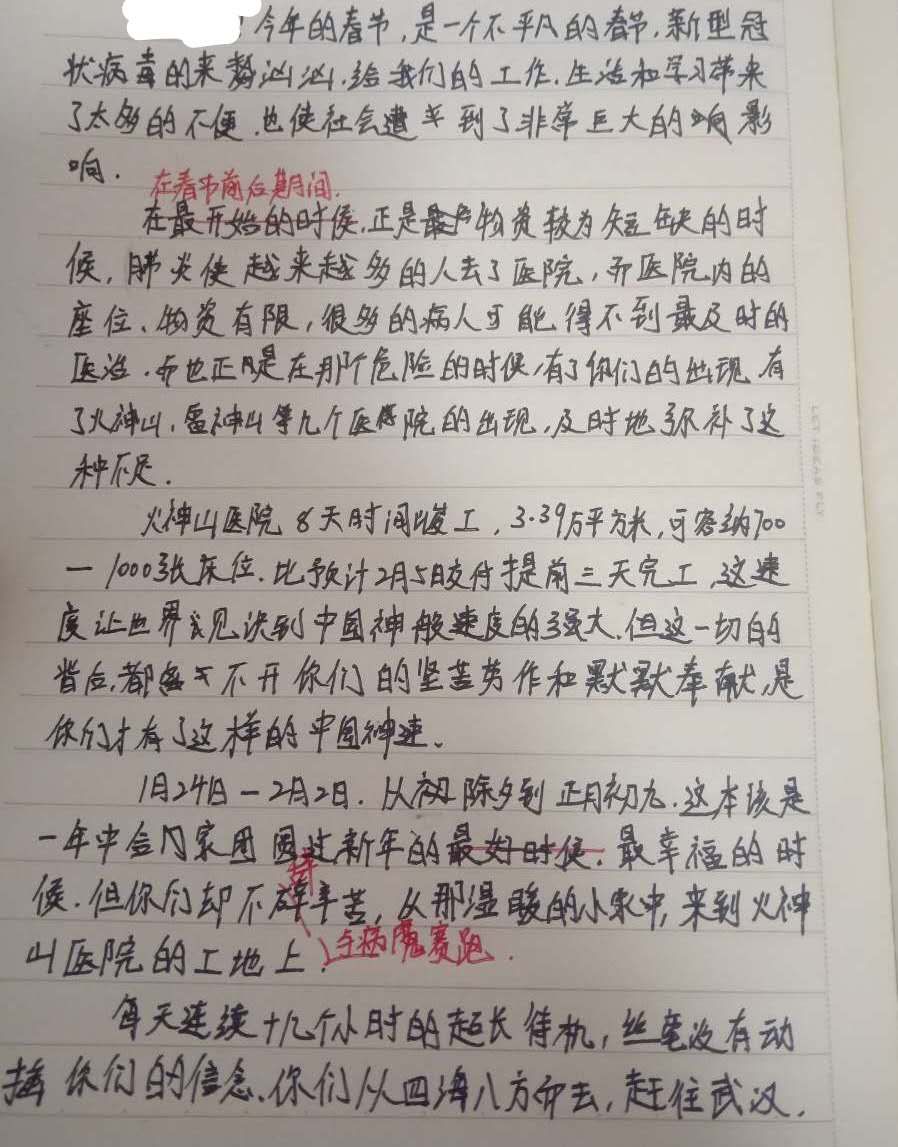 今年的春节,是一个不平凡的春节.新型冠
状病毒的来势汹汹.给我们的工作.生活和学习带来
了太多的不便.也使社会遭辛到了非常巨大的响影
响.
在春节前后期间.
在最开始的时侯.正是最物资较为短缺的时
候,肺炎使越来越多的人去了医院,而医院内的
座位、物资有限,很多的病人可能得不到最及时的
医治.而也正是在那个危险的时侯,有了你们的出现.有
了火神山.雷神山等几个医院的出现,及时地弥补了这
种不足.
火神山医院8天时间竣工,3.39万平方米,可容纳700
—1000张床位.比预计2月5日交付提前三天完工,这速
度让世界见识到中国神般速度的强大.但这一切的
背后,都离不开你们的坚苦劳作和默默奉献,是
你们才有了这样的中国神速、
1月24日—2月2日.从初除夕到正月初九.这本该是
一年中合门家团圆过新年的最好时侯.最幸福的时
侯.但你们却不辞辛苦,从那温暖的小家中,来到火神
辞
山医院的工地上.
与病魔赛跑.
每天连续十几个小时的超长待机,丝毫没有动
摇你们的信念.你们从四海八方而去,赶往武汉.